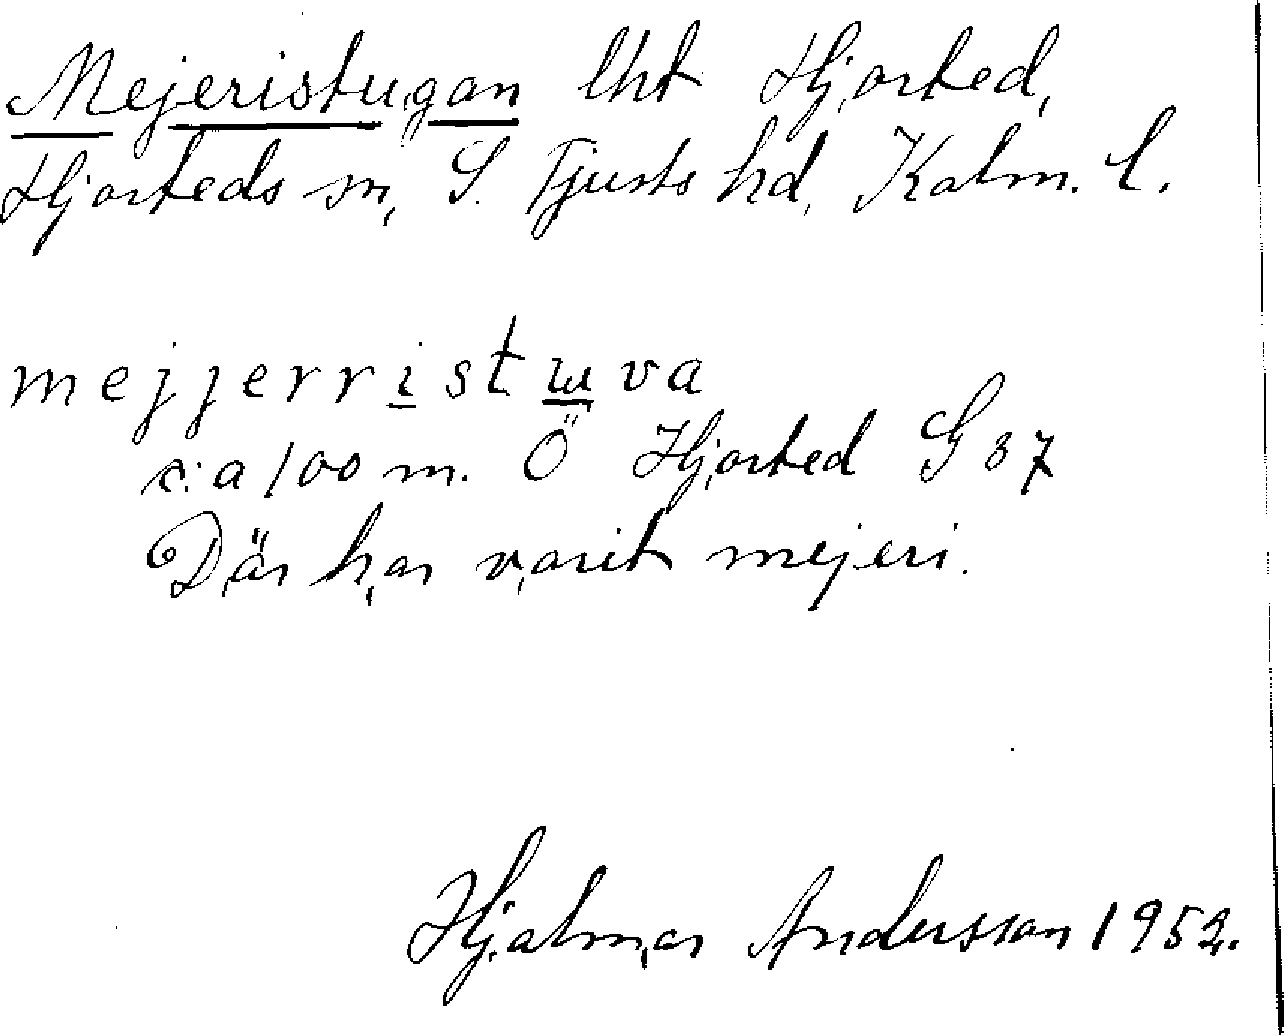 Mejeristugan lht Hjorted,
Hjorteds sn, S. Tjusts hd, Kalm. l.
mejjerristuva
c:a 100 m. Ö Hjorted G 37
Där har varit mejeri.
Hjalmar Andersson 1952.